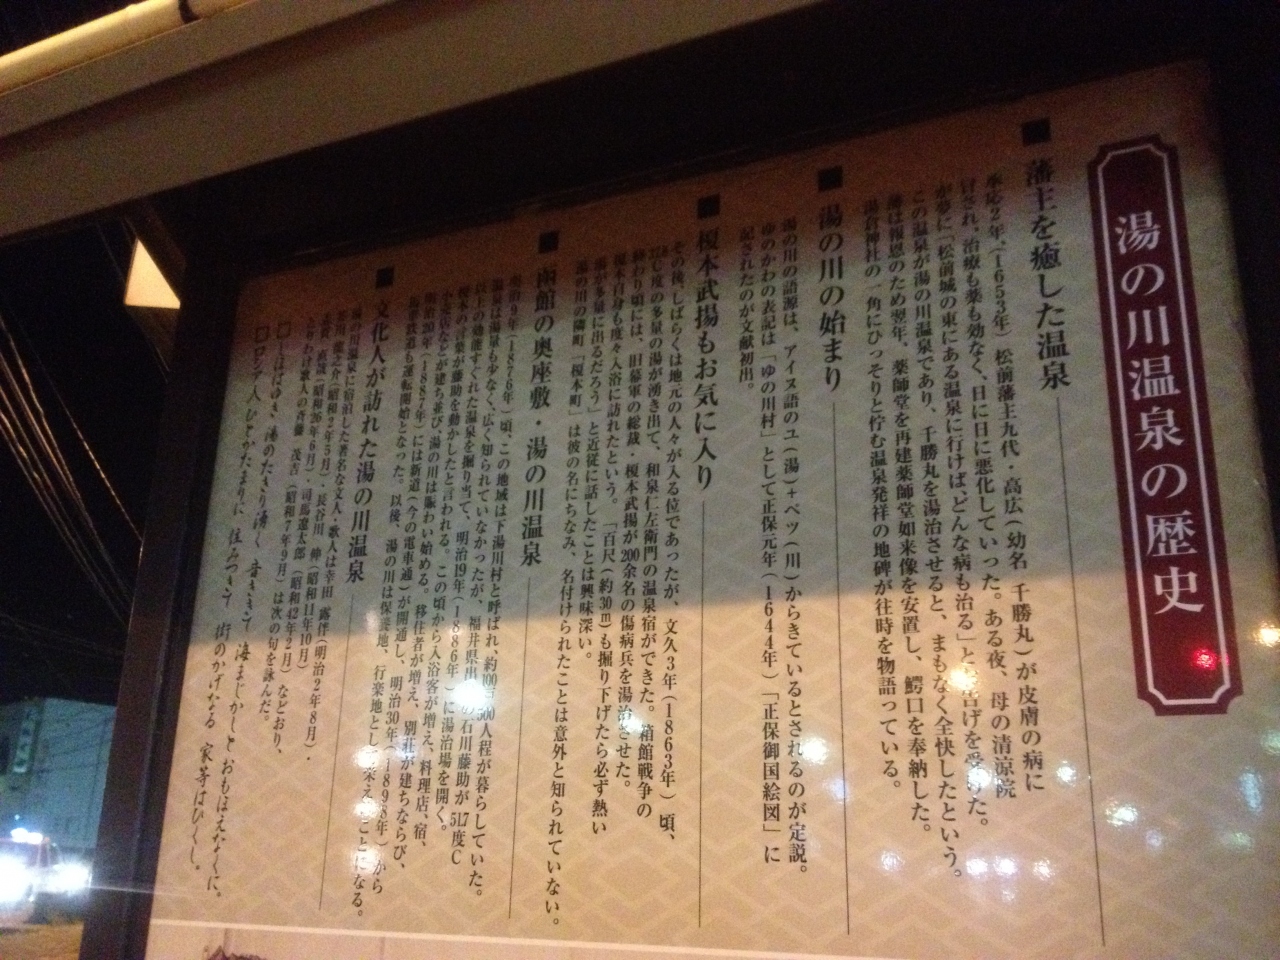 湯の川温泉の歴史
■藩主を癒した温泉
承応2年、(1653年) 松前藩主九代・高広(幼名 千勝丸)が皮膚の病に
冒され、治療も薬も効なく、日に日に悪化していった。ある夜、母の清涼院
が夢に「松前城の東にある温泉に行けば、どんな病も治る」とお告げを受けた。
この温泉が湯の川温泉であり、千勝丸を湯治させると、まもなく全快したという。
藩は報恩のため翌年、薬師堂を再建薬師堂如来像を安置し、鰐口を奉納した。
湯倉神社の一角にひっそりと佇む温泉発祥の地碑が往時を物語っている。
■湯の川の始まり
湯の川の語源は、アイヌ語のユ(湯)+ペツ(川)からきているとされるのが定説。
ゆのかわの表記は「ゆの川村」として正保元年(1644年)「正保御国絵図」に
記されたのが文献初出。
■榎本武揚もお気に入り
その後、しばらくは地元の人々が入る位であったが、文久3年(1863年)頃、
℃度の多量の湯が湧き出て、和泉仁左衛門の温泉宿ができた。箱館戦争の
終わり頃には、旧幕軍の総裁・榎本武揚が200余名の傷病兵を湯治させた。
榎本自身も度々入浴に訪れたという。「百尺(約30m)も掘り下げたら必ず熱い
湯が多量に出るだろう」と近従に話したことは興味深い。
湯の川の隣町「榎本町」は彼の名にちなみ、名付けられたことは意外と知られていない。
■函館の奥座敷・湯の川温泉
明治9年(1876年)頃、この地域は下湯川村と呼ばれ、約100戸500人程が暮らしていた。
温泉は湯量も少なく、広く知られていなかったが、福井県出身の石川藤助が
以上の効能すぐれた温泉を掘り当て、明治19年(1886年)に湯治場を開く。
榎本の言葉が藤助を動かしたと言われる。この頃から入浴客が増え、料理店、宿、
小売店などが建ち並び、湯の川は賑わい始める。移住者が増え、別荘が建ちならび、
明治20年(1887年)には新道(今の電車通)が開通し、明治30年(1898年)から
馬車鉄道も運転開始となった。以後、湯の川は保養地、行楽地として栄えることになる。
■文化人が訪れた湯の川温泉
湯の川温泉に宿泊した著名な文人・歌人は幸田 露伴(明治2年8月)・
芥川 龍之介(昭和2年5月)・長谷川 伸(昭和11年10月)
志賀 直哉(昭和26年6月)・司馬遼太郎(昭和42年2月)などおり、
アララギ派歌人の斉藤 茂吉(昭和7年9月)は次の句を詠んだ。
湯のたぎり湧く音ききて海まぢかしとおもほえなくに。
□ロシア人ひとかたまりに住みつきて街のかげなる家芽はひくし。